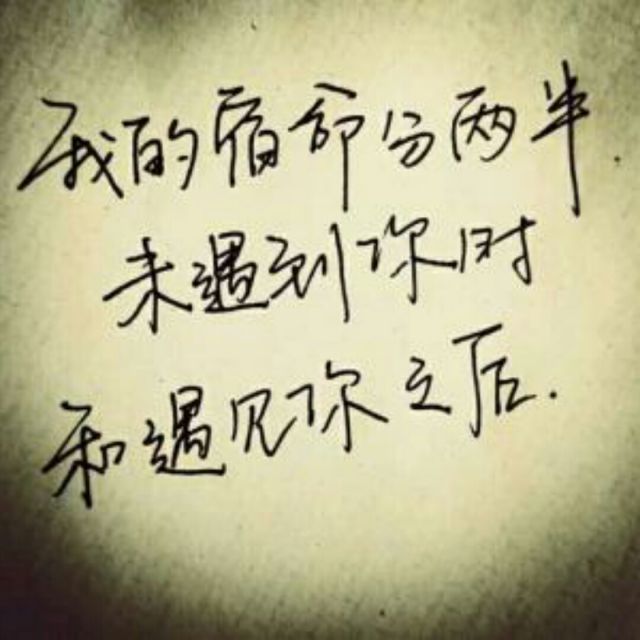 我的宿命分两半
未遇到你时
和遇见你之后.